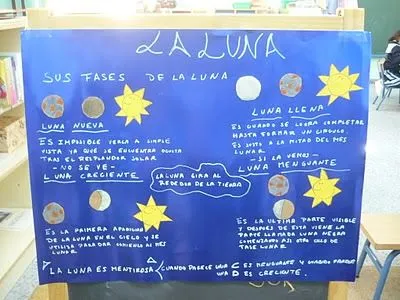 LA LUNA
SUS FASES DE LA LUNA
LUNA NUEVA
ES IMPOSIBLE VERLA A SIMPLE
VISTA YA QUE SE ENCUENTRA OCULTA
TRAS EL RESPLANDOR SOLAR
- NO SE VE -
LUNA CRECIENTE
ES LA PRIMERA APARICION
DE LA LUNA EN EL CIELO Y SE
UTILIZA PARA DAR COMIENZO AL MES
LUNAR
LUNA LLENA
ES CUANDO SE LOGRA COMPLETAR
HASTA FORMAR UN CIRCULO
ES JUSTO A LA MITAD DEL MES
LUNAR
- SI LA VEMOS -
LUNA MENGUANTE
ES LA ULTIMA PARTE VISIBLE
Y DESPUES DE ESTA VIENE LA
LLAMADA LUNA NEGRA
COMENZANDO ASI OTRO CICLO DE
FASE LUNAR
LA LUNA GIRA AL
REDEDOR DE LA TIENDA
LA LUNA ES MENTIROSA, CUANDO PARECE UNA C ES MENGUANTE Y CUANDO PARECE
UNA D ES CRECIENTE.